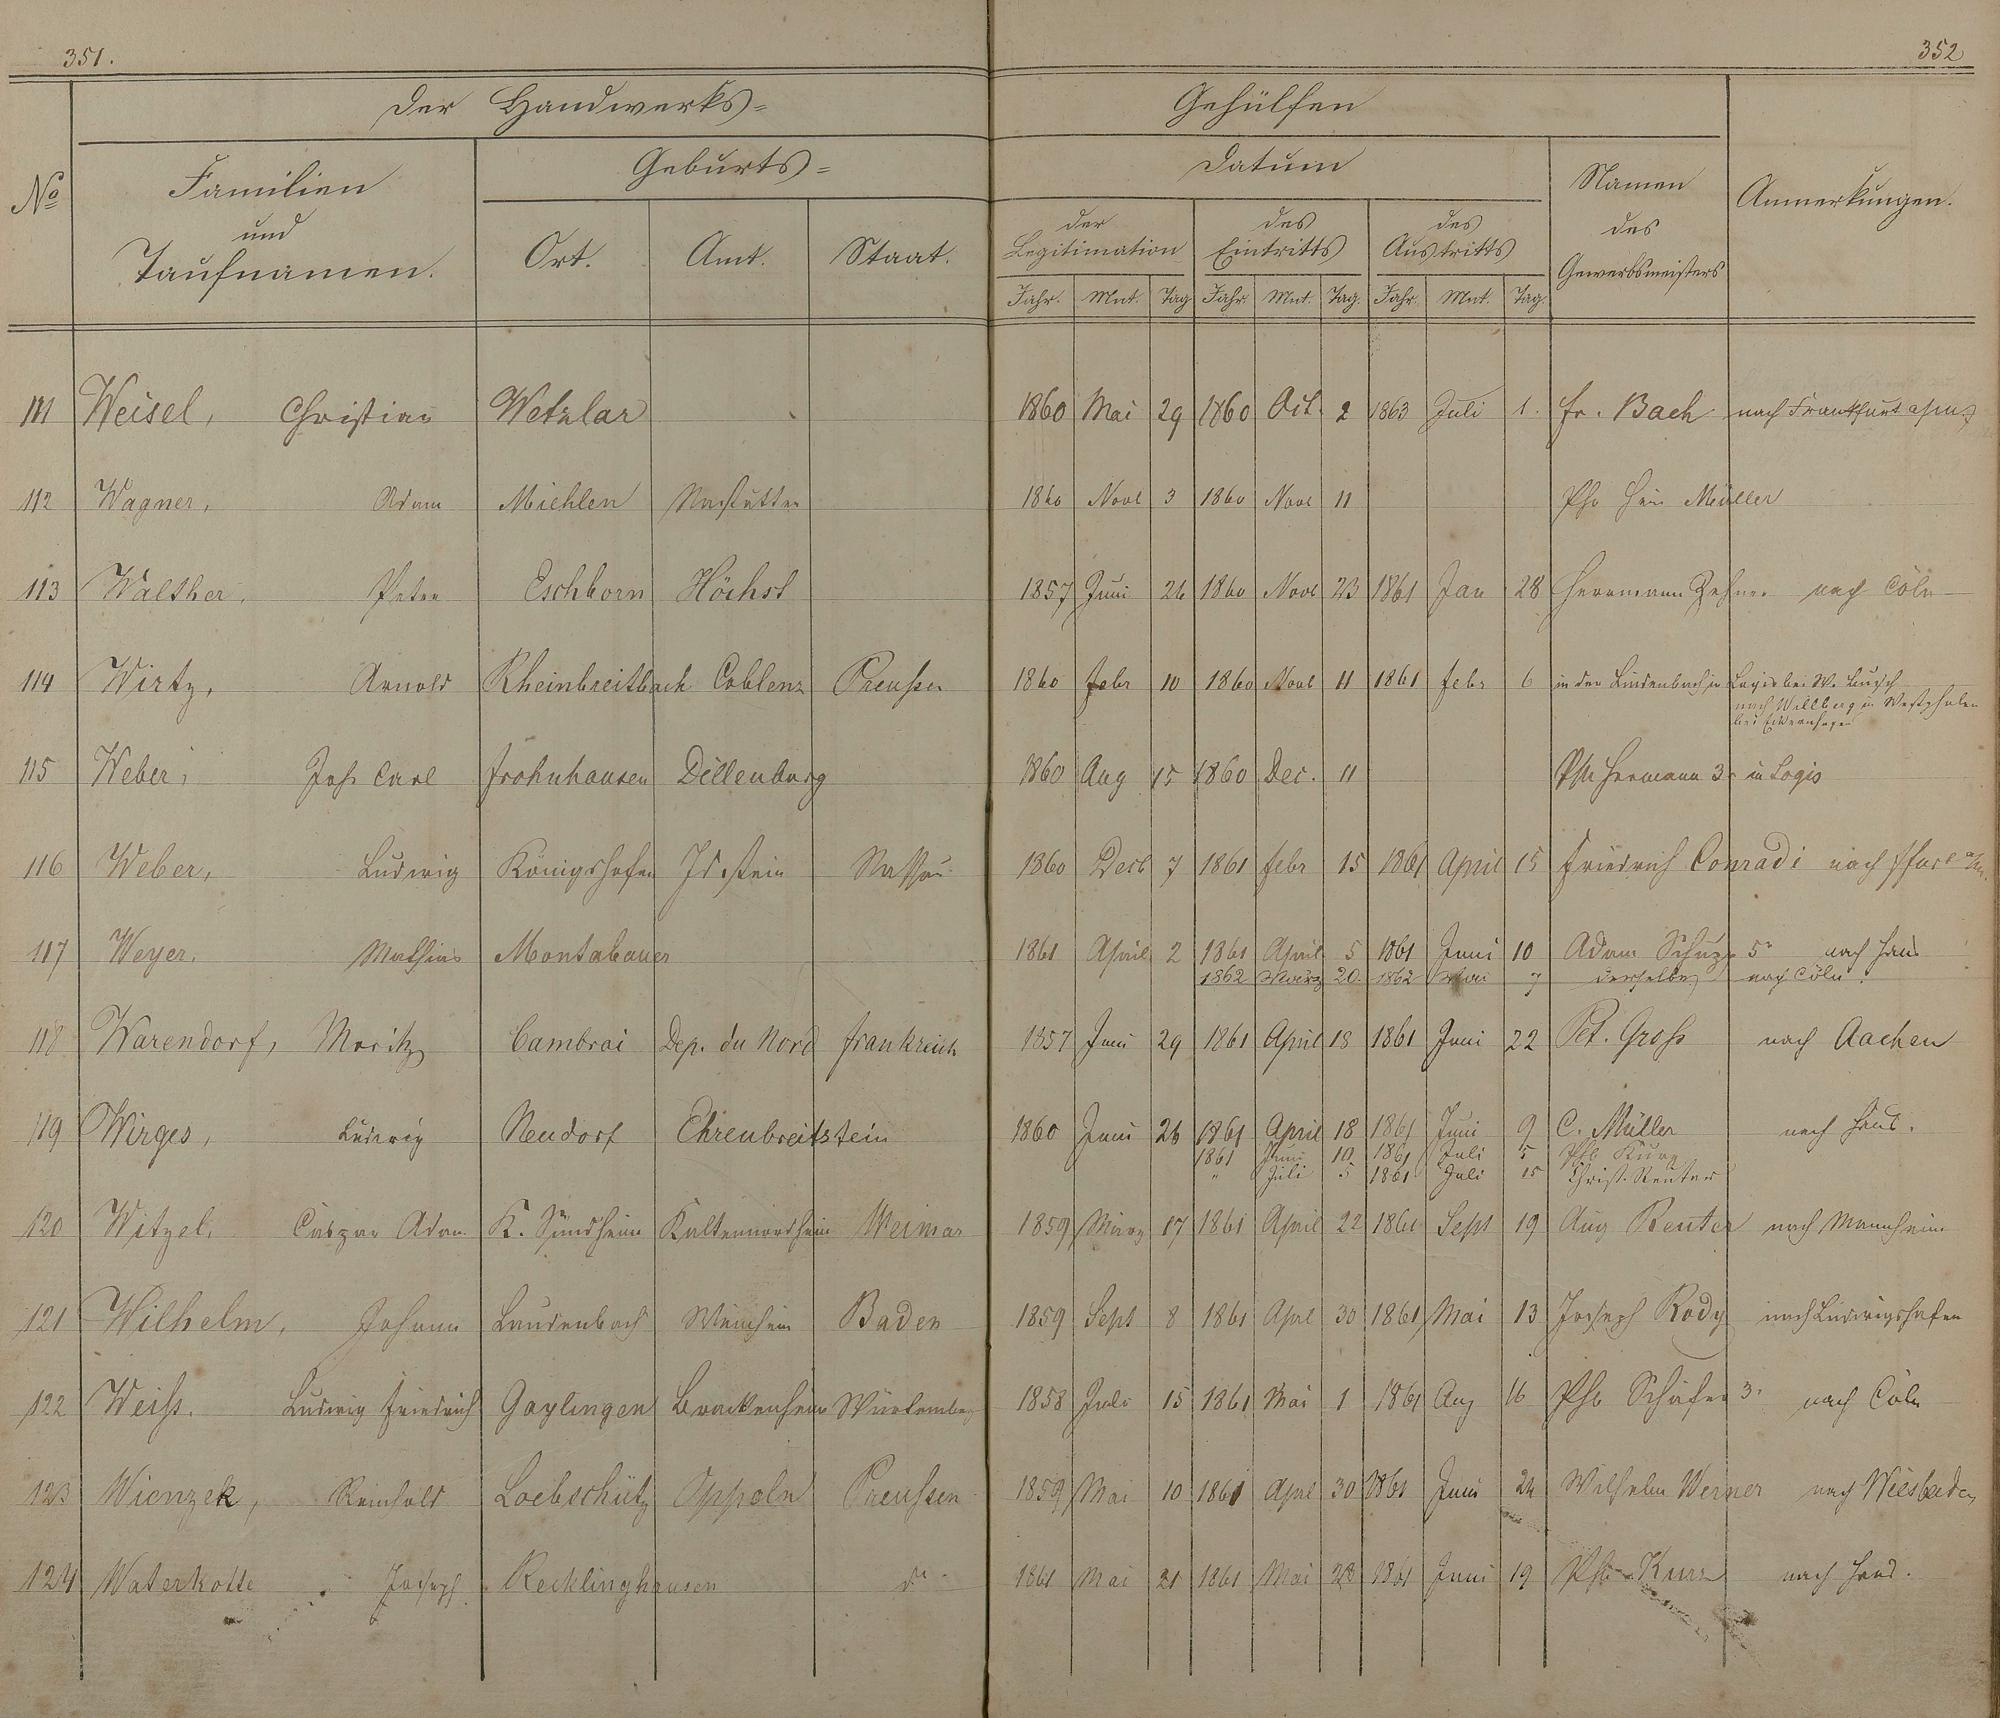 351.
352
Der Handwerks=
Gehülfen
No
Familien
und
Taufnamen.
Geburts=
Ort. Amt. Staat.
Datum
der
Legitimation
des
Eintritts
des
Austritts
Jahr. Mnt. Tag Jahr. Mnt. Tag. Jahr. Mnt. Tag.
Namen
des
Gewerbsmeisters
Anmerkungen.
111 Weisel, Christian Wetzlar 1860 Mai 29 1860 Oct. 2 1863 Juli 1. Fr. Bach nach Frankfurt
112 Wagner, Adam Miehlen Nastätten 1860 Novb 3 1860 Novb 11 Müller
113 Walther, Peter Eschborn Höchst 1857 Juni 26 1860 Novb 23 1861 Jan 28 Herrmann Zehner nach Cöln
114 Wirtz, Arnold Rheinbreitbach Coblenz Preußen 1860 Febr 10 1860 Novb 11 1861 Febr 6 in der Lindenbach in Logis bei W. Busch
nach Willberg in Westphalen
bei Eckenhagen
115 Weber, Joh Carl Frohnhausen Dillenburg 1860 Aug 15 1860 Dec. 11 Phil Hermann 3r in Logis
116 Weber, Ludwig Königshofen Idstein Nassau 1860 Decb 7 1861 Febr 15 1861 April 15 Friedrich Conradi nach
117 Weyer, Mathias Montabauer 1861 April 2 1861 April 5 1861 Juni 10 Adam Schupp 5r nach Haus
1862 März 20. 1862 Mai 7 derselbe nach Cöln.
118 Warendorf, Moritz Cambrai Dep. du Nord Frankreich 1857 Juni 29 1861 April 18 1861 Juni 22 Pet. Groß nach Aachen
119 Wirges, Ludwig Neudorf Ehrenbreitstein 1860 Juni 26 1861 April 18 1861 Juni 9 C. Müller nach Haus.
1861 Juni 10 1861 Juli 5 Phil Kurz
" Juli 5 1861 Juli 15 Christ. Reuter
120 Witzel, Caspar Adam K. Sundheim Kaltennordheim Weimar 1859 März 17 1861 April 22 1861 Sept 19 Aug Reuter nach Mannheim
121 Wilhelm, Johann Laudenbach Weinheim Baden 1859 Sept 8 1861 Aprl 30 1861 Mai 13 Joseph Rody nach Ludwigshafen
122 Weiß. Ludwig Friedrich Gaylingen Brackenheim Würtemberg 1858 Juli 15 1861 Mai 1 1861 Aug 16 Phil Schäfer 3r nach Cöln
123 Wienzek, Reinhold Loebschütz Oppoln Preußen 1859 Mai 10 1861 Aprl 30 1861 Juni 24 Wilhelm Werner nach Wiesbaden
124 Waterkotte Joseph Recklinghausen do 1861 Mai 21 1861 Mai 28 1861 Juni 19 Phil Kurz nach Haus.